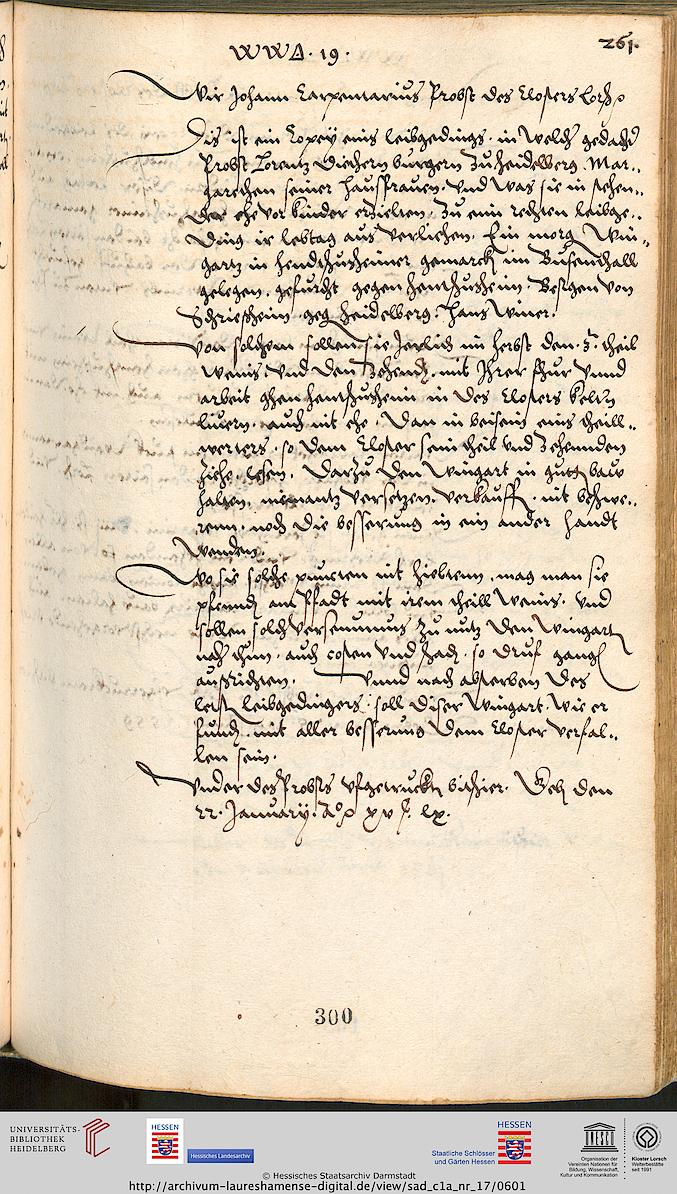 WWA. 19.
261.
Wir Johann Carpentarius Probst des Closters Lorsch
Dis ist ein Copey eins leibgedings. in welch gedacht
Probst Lorentz Diehern burgern zu heidelberg. Mar-
garethen seiner haussfrauen. und was sie in stehen-
der ehe vor kinder erzielten. zu eim rechten leibge-
ding ir lebtag aus verliehen. Ein morg Win-
gartz in hendschusheimer gemarck im Busenthall
gelegen, gefurcht gegen hentschusheim. Besigen von
Schriesheim. geg heidelberg. Hans Winer.
Von solchem sollen sie Jerlich im herbst den. 3. theil
weins und den Zehend. mit Ihrer fhur unnd
arbeit ghen hentschusheim in des Closters keltern
liuern. auch nit ehe. Dan in beisein eins theill-
werters. so dem Closter sein theil und Zehennden
ziehe. lesen. Darzu den wingart in gutem baw
halten, niemantz versetzen. verkauffen. nit beschwe-
renn. noch die besserung in ein ander handt
wenden.
Wo sie solche puncten nit hieltenn, mag man sie
pfennd am Pfadt mit irem theill weins. und
sollen solch versemnus zu nutz den wingart
nach thun. auch costen und schad. so druf gangen
aussrichten. Unnd nach absterben des
letst leibgedingers. soll diser wingart. wie er
fund. mit aller besserung dem Closter verfal-
len sein.
Under des Probsts ufgetruckten bitschier. Geb den
22. January. Ao XV C. LX.
300
UNIVERSITÄTS-
BIBLIOTHEK
HEIDELBERG
HESSEN
Hessisches Landesarchiv
Staatliche Schlösser
und Gärten Hessen
HESSEN
UNESCO
Organisation der
Vereinten Nationen für
Bildung, Wissenschaft,
Kultur und Kommunikation
Kloster Lorsch
Welterbestätte
seit 1991
© Hessisches Staatsarchiv Darmstadt
http://archivum-laureshamense-digital.de/view/sad_c1a_nr_17/0601